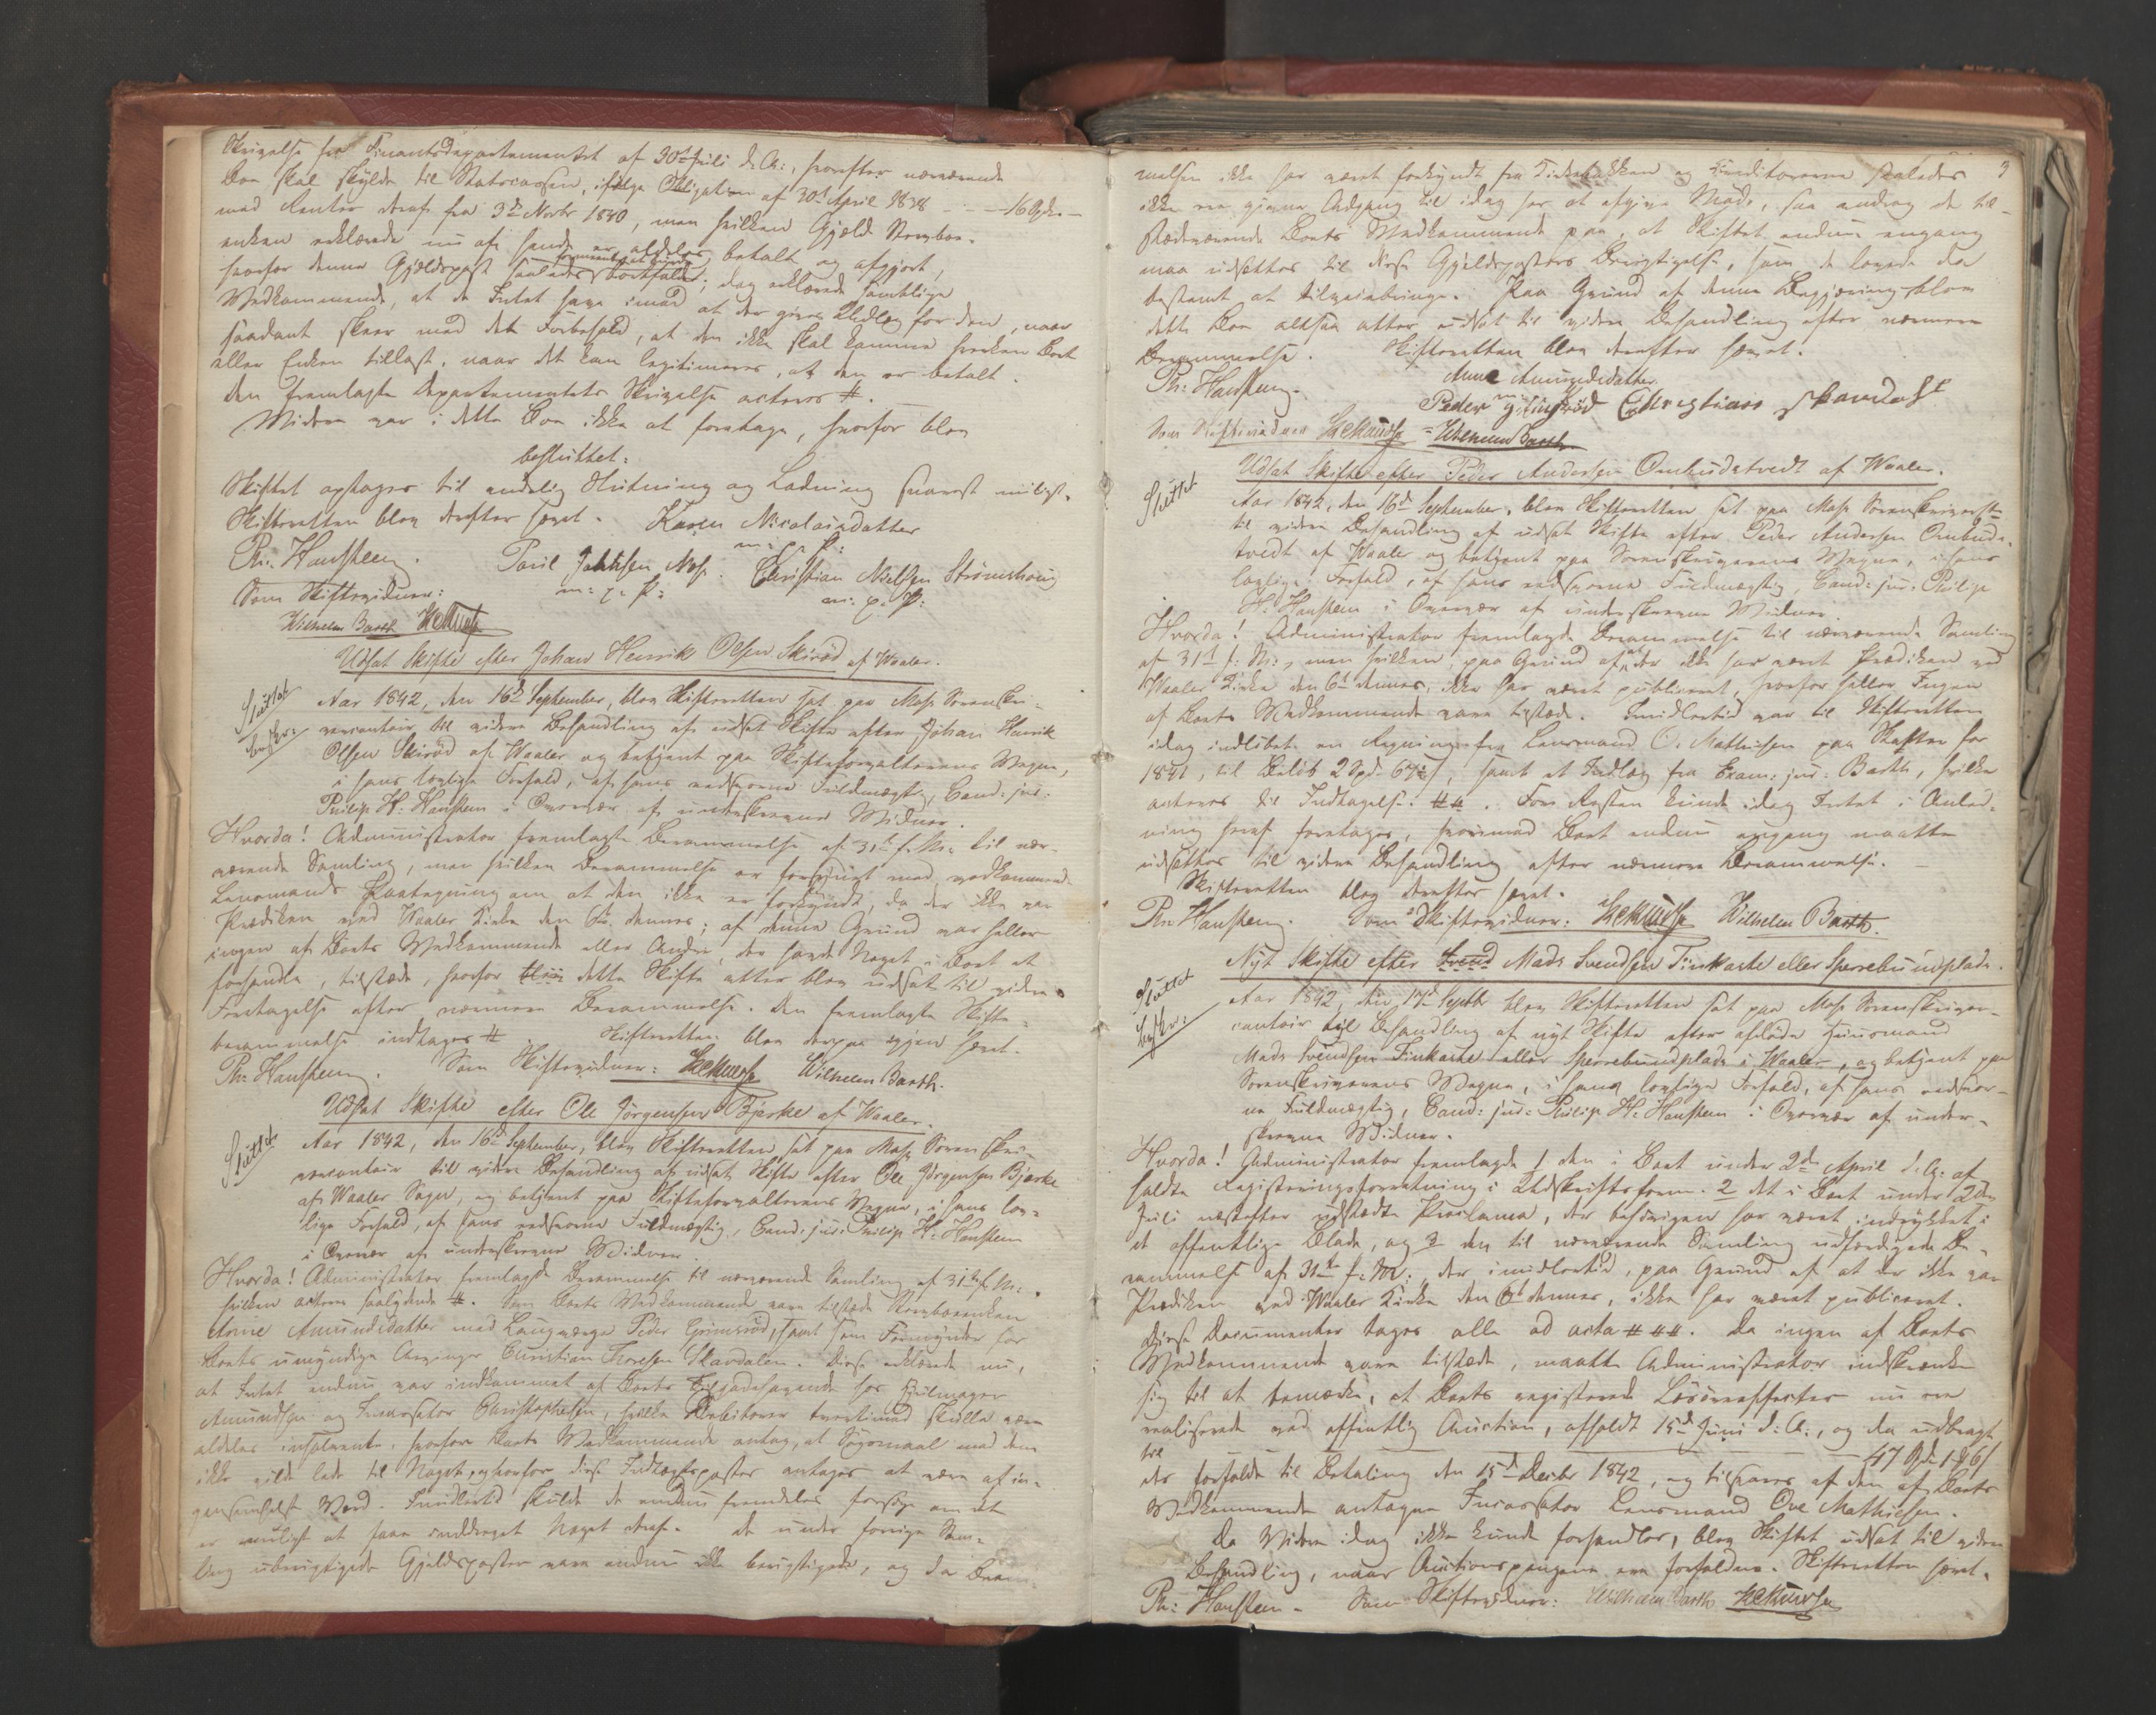 Skrivelse fra Finantsdepartementet af 30te Juli d. A:, hvorefter nærværende
Boe skal skylde til Statscassen, ifølge Obligation af 30te April 1838 - - - 16 Spd. -
med Renter deraf fra 3die Novbr 1840, men hvilken Gjæld Stervboe-
enken erklærede nu at sande er aldeles betalt og afgjort,
hvorfor denne Gjældspost saaledes bortfalder; dog erklærede samtlige
Vedkommende, at de Intet have imod at der gives Udlæg for den, naar
saadant skeer med det Forbehold, at den ikke skal komme hverken Boet
eller Enken tillast, naar det kan legitimeres, at den er betalt.
Den fremlagte Departementets Skrivelse acteres #.
Videre var i dette Boe ikke at foretage, hvorfor blev
besluttet:
Skiftet optages til endelig Slutning og Ladning snarest muligt.
Skifteretten blev derefter hævet. Karen Nicolaisdatter
m: p: P:
Ph: Hansteen. Povil Jakobsen Mos. Christian Nielsen Strømshoug
Som Skiftevidner: m: p: P: m: p: P:
Wilhelm Barth HCKnudse
Udsat Skifte efter Johan Henrik Olsen Skiröd af Waaler.
Sluttet
beskr:
Aar 1842, den 16de September, blev Skifteretten sat paa Moss Sorenskri-
vercontoir til videre Behandling af udsat Skifte efter Johan Henrik
Olsen Skiröd af Waaler og betjent paa Skifteforvalterens Vegne,
i hans lovlige Forfald, af hans edsvorne Fuldmægtig, Cand: jur:
Philip H: Hansteen i Overvær af underskrevne Vidner.
Hvorda! Administrator fremlagde Berammelse af 31te f. M: til nær-
værende Samling, men hvilken Berammelse er forsynet med vedkommende
Lensmands Paategning om at den ikke er forkyndt, da der ikke var
Prædiken ved Waaler Kirke den 6te dennes; af denne Grund var heller
ingen af Boets Vedkommende eller Andre, der havde Noget i Boet at
forhandle, tilstæde, hvorfor dette Skifte atter blev udsat til videre
Foretagelse efter nærmere Berammelse. Den fremlagte Skifte-
berammelse indtages #. Skifteretten blev derpaa igjen hævet.
Ph: Hansteen. Som Skiftevidner: HCKnudse Wilhelm Barth.
Udsat Skifte efter Ole Jörgensen Bjerke af Waaler.
Sluttet
Aar 1842, den 16de September, blev Skifteretten sat paa Moss Sorenskri-
vercontoir til videre Behandling af udsat Skifte efter Ole Jørgensen Bjerke
af Waaler Sogn, og betjent paa Skifteforvalterens Vegne, i hans lov-
lige Forfald, af hans edsvorne Fuldmægtig, Cand: jur: Philip H: Hansteen
i Overvær af underskrevne Vidner.
Hvorda! Administrator fremlagde Berammelse til nærværende Samling af 31te f. M:,
hvilken acteres saalydende #. Som Boets Vedkommende vare tilstæde Stervboeenken
Anne Amundsdatter med Laugværge Peder Grimsröd, samt som Formynder for
Boets umyndige Arvinger Christian Thoresen Skavdalen. Disse erklærede nu,
at Intet endnu var indkommet af Boets Tilgodehavende hos Hjulmager
Amundsen og Incassator Christophersen, hvilke Debitorer tvertimod skulle være
aldeles insolvente, hvorfor Boets Vedkommende antog, at Søgsmaal mod dem
ikke vilde lede til Noget, og hvorfor disse Indtægtsposter antages at være af in-
gensomhelst Værd. Imidlertid skulde de endnu fremdeles forsøge om det
er muligt at faae inddraget Noget deraf. De under forrige Sam-
ling uberigtigede Gjældsposter vare endnu ikke berigtigede, og da Beram-
3
melsen ikke har været forkyndt fra Kirkebakken og Creditorerne saaledes
ikke ere givne Adgang til idag her at afgive Møde, saa androg de til-
stædeværende Boets Vedkommende paa, at Skiftet endnu engang
maa udsættes til disse Gjældsposters Berigtigelse, som de lovede da
bestemt at tilveiebringe. Paa Grund af denne Begjæring blev
dette Boe altsaa atter udsat til videre Behandling efter nærmere
Berammelse. Skifteretten blev derefter hævet.
Ph: Hansteen. Anne Amundsdatter
Peder Grimsröd Christian Skavdahl
Som Skiftevidner HCKnudse Wilhelm Barth
Udsat Skifte efter Peder Andersen Ombudstvedt af Waaler.
Sluttet
Aar 1842, den 16de September, blev Skifteretten sat paa Moss Sorenskrivercontoir
til videre Behandling af udsat Skifte efter Peder Andersen Ombuds-
tvedt af Waaler og betjent paa Sorenskriverens Vegne, i hans
lovlige Forfald, af hans edsvorne Fuldmægtig, Cand: jur: Philip
H: Hansteen i Overvær af underskrevne Vidner.
Hvorda! Administrator fremlagde Berammelse til nærværende Samling
af 31te f: M:, men hvilken, paa Grund af at der ikke har været Prædiken ved
Waaler Kirke den 6te dennes, ikke har været publiceret, hvorfor heller Ingen
af Boets Vedkommende vare tilstæde. Imidlertid var til Skifteretten
idag indløbet en Regning fra Lensmand O. Mathiesen paa Skatter for
1841, til Beløb 2 Spd. 67 s, samt et Indlæg fra Exam: jur: Barth, hvilke
acteres til Indtagelse ##. For Resten kunde idag Intet i Anled-
ning heraf foretages, hvorimod Boet endnu engang maatte
udsættes til videre Behandling efter nærmere Berammelse.
Skifteretten blev derefter hævet.
Ph: Hansteen. Som Skiftevidner: HCKnudse Wilhelm Barth.
Nyt Skifte efter Svend Mads Svendsen Finkaste eller Sperrebundplads.
Sluttet
beskr:
Aar 1842, den 17de Septbr blev Skifteretten sat paa Moss Sorenskriver-
contoir til Behandling af nyt Skifte efter afdøde Huusmand
Mads Svendsen Finkaste eller Sperrebundplads i Waaler, og betjent paa
Sorenskriverens Vegne, i hans lovlige Forfald, af hans edsvor-
ne Fuldmægtig, Cand: jur: Philip H: Hansteen i Overvær af under-
skrevne Vidner.
Hvorda! Administrator fremlagde 1 den i Boet under 2den April d: A: af-
holdte Registreringsforretning i Udskriftsform. 2 det i Boet under 2den
Juli næstefter udstædte Proclama, der behørigen har været indrykket i
de offentlige Blade, og 3 den til nærværende Samling udfærdigede Be-
rammelse af 31te f: M:, der imidlertid, paa Grund af at der ikke var
Prædiken ved Waaler Kirke den 6te dennes, ikke har været publiceret.
Disse Documenter tages alle ad acta ###. Da ingen af Boets
Vedkommende vare tilstæde, maatte Administrator indskrænke
sig til at bemærke, at Boets registrerede Løsøreeffecter nu ere
realiserede ved offentlig Auction, afholdt 15de Juni d: A:, og da udbragt
til - 47 Spd. 1 # 6 s
der forfaldt til Betaling den 15de Decbr 1842, og tilsvares af den af Boets
Vedkommende antagne Incassator Lensmand Ove Mathiesen.
Da Videre idag ikke kunde forhandles, blev Skiftet udsat til videre
Behandling, naar Auctionspengene ere forfaldne. Skifteretten hævet.
Ph: Hansteen - Som Skiftevidner: Wilhelm Barth HCKnudse